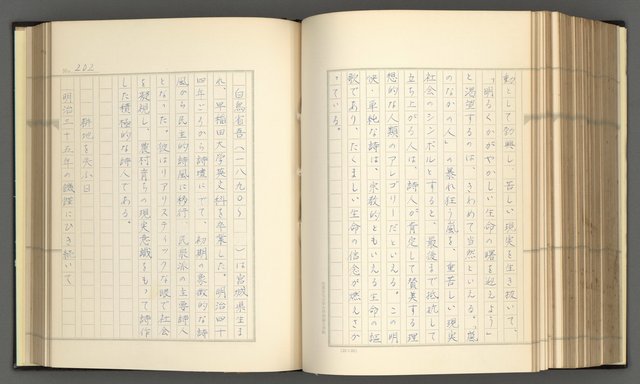 動として勃興し、苦しい現実を生き抜いて、
「明るくかがやかしい生命の曙を迎えよう」
と渇望するのは、きわめて当然といえる。「嵐
のなかの人」の暴れ狂う嵐を、重苦しい現実
社会のシンボルとすると、最後まで抵抗して
立ち上がる人は、詩人が肯定して賛美する理
想的な人類のアレゴリーだといえる。この明
快・単純な詩は、宗教的ともいえる生命の讴
歌であり、たくましい生命の信念が燃えさか
っている。
No. 202
白鳥省吾(一八九〇〜　)は宮城県生ま
れ、早稲田大学英文科を卒業した。明治四十
四年ごろから詩壇にでて、初期の象徴的な詩
風から民主的詩風に移行、民衆派の主要詩人
となった。彼はリアリスティックな眼で社会
を凝視し、農村育ちの現実意識をもって詩作
した積極的な詩人である。
耕地を失ふ日
明治三十五年の饑饉にひき続いて
(20×20)